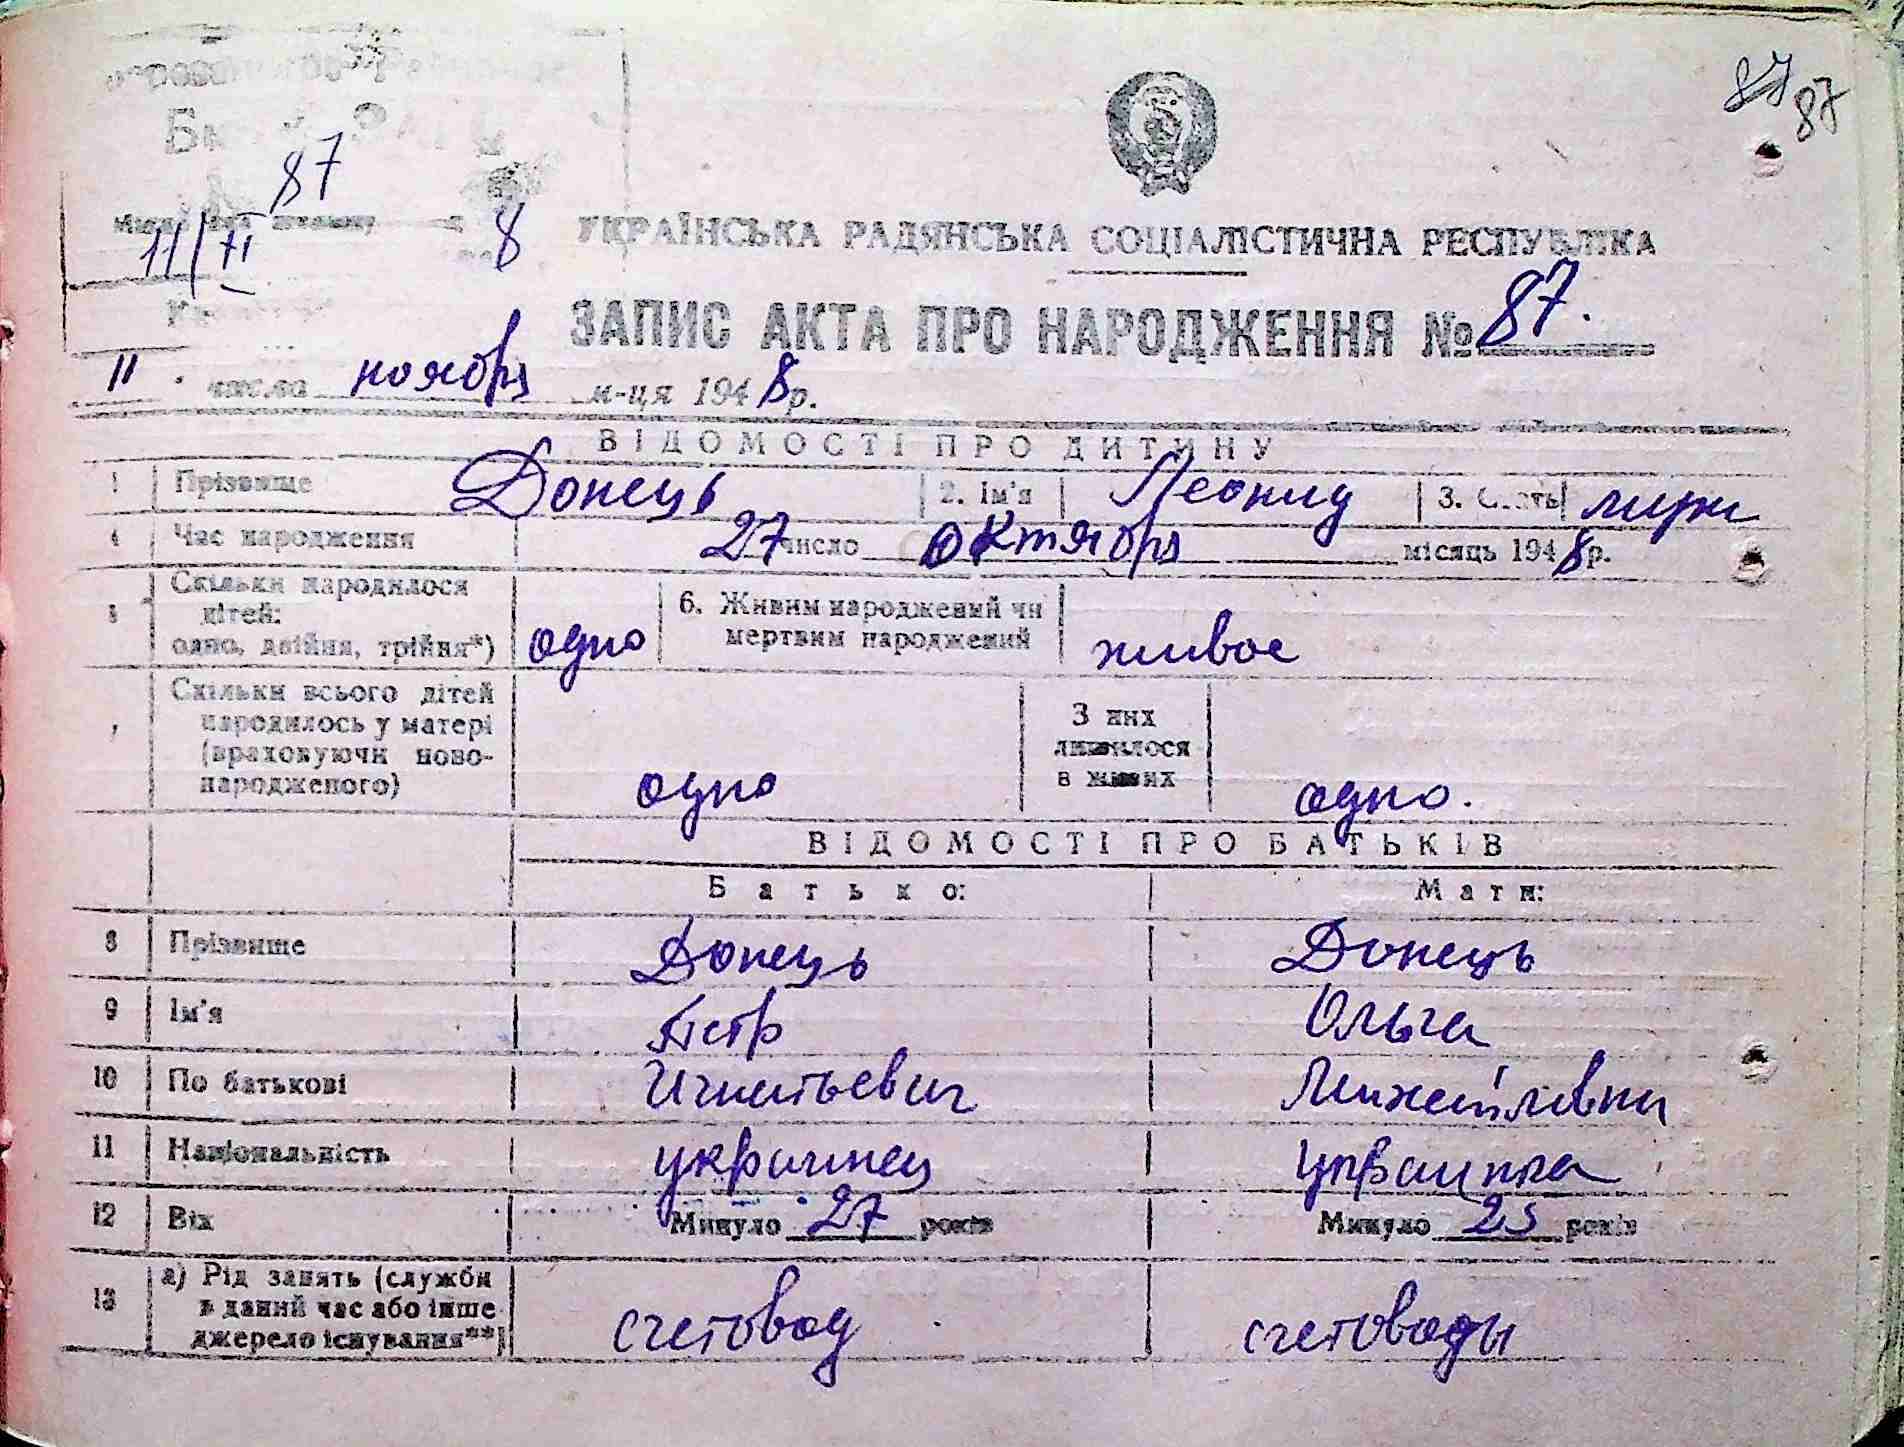 87 87
87
8
11/XI
УКРАЇНСЬКА РАДЯНСЬКА СОЦІАЛІСТИЧНА РЕСПУБЛІКА
ЗАПИС АКТА ПРО НАРОДЖЕННЯ № 87.
11 число ноября м-ця 1948 р.
ВІДОМОСТІ ПРО ДИТИНУ
1 Прізвище Донець 2. Ім'я Леонид 3. Стать муж
4 Час народження 27 число октября місяць 1948 р.
5 Скільки народилося дітей: одно, двійня, трійня*) одно 6. Живим народжений чи мертвим народжений живое
7 Скільки всього дітей народилось у матері (враховуючи новонародженого) одно З них лишилося в живих одно.
ВІДОМОСТІ ПРО БАТЬКІВ
Батько: Мати:
8 Прізвище Донець Донець
9 Ім'я Петр Ольга
10 По батькові Игнатьевич Михайловна
11 Національність украинец украинка
12 Вік Минуло 27 років Минуло 25 років
13 а) Рід занять (служби в даний час або інше джерело існування**) счетовод счетовод